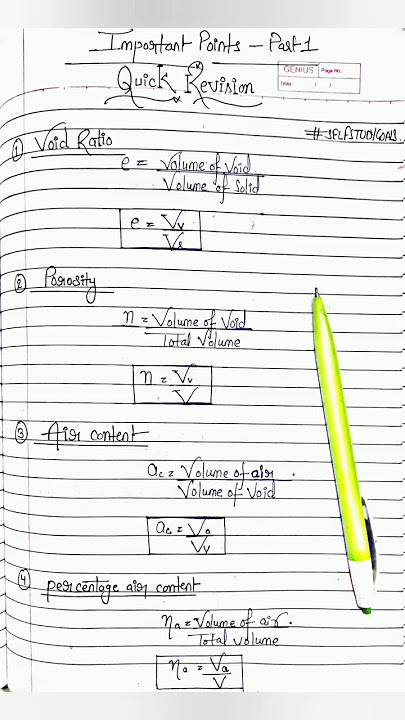 Important Points - Part 1
Quick Revision
GENIUS Page No.:
Date / /
# SELFSTUDYGOALS
① Void Ratio
e = Volume of Void / Volume of Solid
e = Vv / Vs
② Porosity
n = Volume of Void / Total Volume
n = Vv / V
③ Air content
ac = Volume of air / Volume of Void
ac = Va / Vv
④ percentage air content
ηa = Volume of air / Total volume
ηa = Va / V